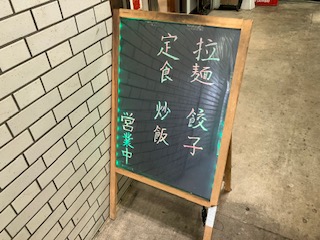 拉麺 餃子
定食 炒飯
営業中